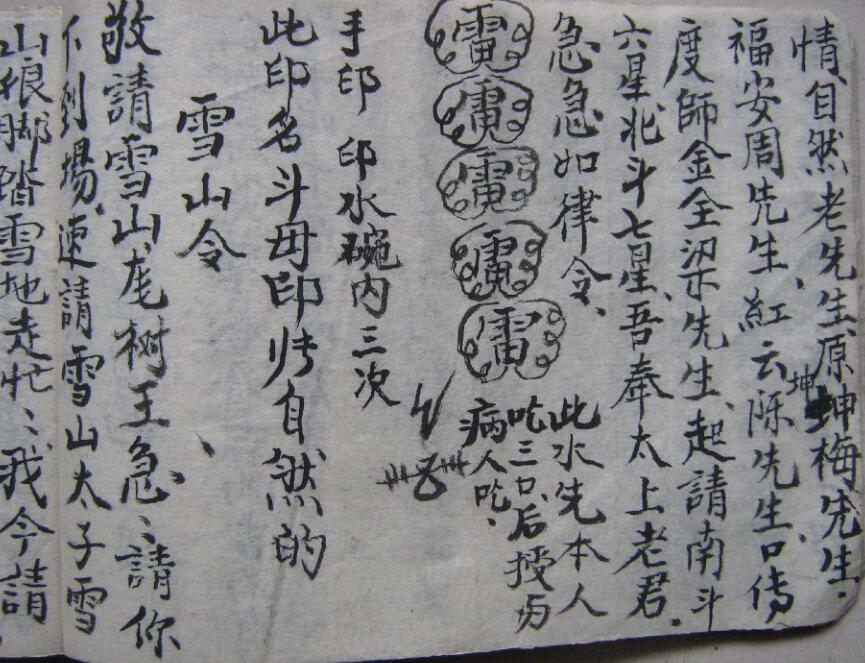 情自然老先生、原坤梅先生.
坤
福安周先生、紅云陈先生、口傳
度師金全梁先生、起請南斗
六星北斗七星、吾奉太上老君.
急急如律令、
此水先本人
吃三口、后授与
病人吃、
手印 印水碗内三次
此印名斗母印 自然的
雪山令
敬請雪山 树王急、、請你
到場、速請雪山太子雪
山狼脚踏雪地走忙、、我今請